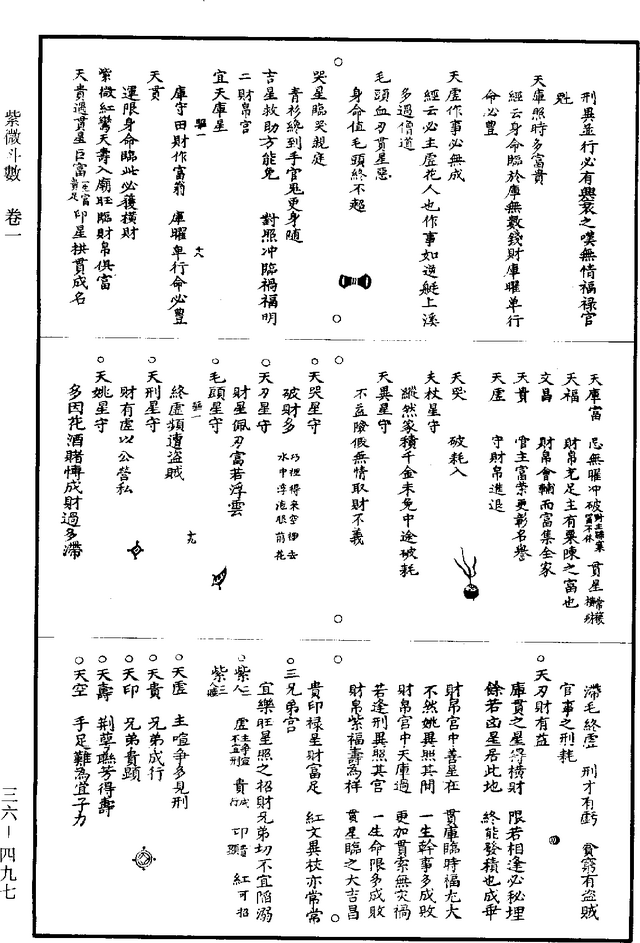 紫微斗數 卷一
三六－四九七
刑異並行必有興衰之嘆無情福祿官
尅
天庫照時多富貴
經云身命臨於庫無數錢財庫曜單行
命必豐
天虛作事必無成
經云必主虛花人也作事如逆艇上溪
多過僧道
毛頭血刃貫星惡
身命值毛頭終不超
哭星臨哭親庭
青衫終到手官鬼更身隨
吉星救助方能免 對照冲臨禍福明
二財帛宮
宜天庫星
庫守田財作富翁 庫曜单行命必豐
天貫
運限身命臨此必獲橫財
紫微紅鸞天壽入廟旺臨財帛俱富
天貴遇貫星巨富 印星拱貫成名
天庫富 忌無曜冲破 貫星
天福 財帛充足主有粟陳之富也
文昌 財帛會輔而富集全家
天貴 官主富榮更彰名譽
天虛 守財帛進退
天哭 破耗入
天杖星守
縱然家積千金未免中途破耗
天異星守
不益險假無情取財不義
○天哭星守
破財多 巧裡得來空裡去 水中浮泡眼前花
○天刃星守
財星佩刃富若浮雲
○毛頭星守
終虛頻遭盜賊
○天刑星守
財有虛以公營私
○天姚星守
多因花酒賭博成財過多滯
滯毛終虛 刑才有虧 貧窮有盜賊
官事之刑耗
○天刃財有益
庫貫之星得橫財 限若相逢必秘埋
餘若凶星居此地 終能發積也成乖
財帛宮中善星在 貫庫臨時福尤大
不然姚異照其間 一生幹事多成敗
財帛宮中天庫過 更加貫索無灾禍
若逢刑異照其宮 一生命限多成敗
財帛紫福壽為祥 貫星臨之大吉昌
貴印祿星財富足 紅文異杖亦常常
○三兄弟宮
宜樂旺星照之招財兄弟切不宜陷溺
○天虛 主喧爭多見刑
○天貴 兄弟成行
○天印 兄弟貴顯
○天壽 荆蕚聯芳得壽
○天空 手足難為宜子力